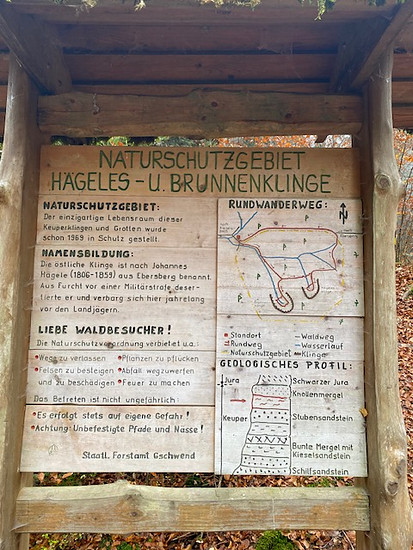 NATURSCHUTZGEBIET
HÄGELES - U. BRUNNENKLINGE
NATURSCHUTZGEBIET:
Der einzigartige Lebensraum dieser
Keuperklingen und Grotten wurde
schon 1969 in Schutz gestellt.
NAMENSBILDUNG:
Die östliche Klinge ist nach Johannes
Hägele (1806-1859) aus Ebersberg benannt.
Aus Furcht vor einer Militärstrafe deser-
tierte er und verbarg sich hier jahrelang
vor den Landjägern.
LIEBE WALDBESUCHER!
Die Naturschutzverordnung verbietet u.a.
• Wege zu verlassen • Pflanzen zu pflücken
• Felsen zu besteigen • Abfall wegzuwerfen
und zu beschädigen • Feuer zu machen
Das Betreten ist nicht ungefährlich
• Es erfolgt stets auf eigene Gefahr!
• Achtung: Unbefestigte Pfade und Nässe!
Staatl. Forstamt Gschwend
RUNDWANDERWEG:
N
Standort Waldweg
Rundweg Wasserlauf
Naturschutzgebiet Klinge
GEOLOGISCHES PROFIL:
Jura Schwarzer Jura
Knollenmergel
Keuper Stubensandstein
Bunte Mergel mit
Kieselsandstein
Schilfsandstein